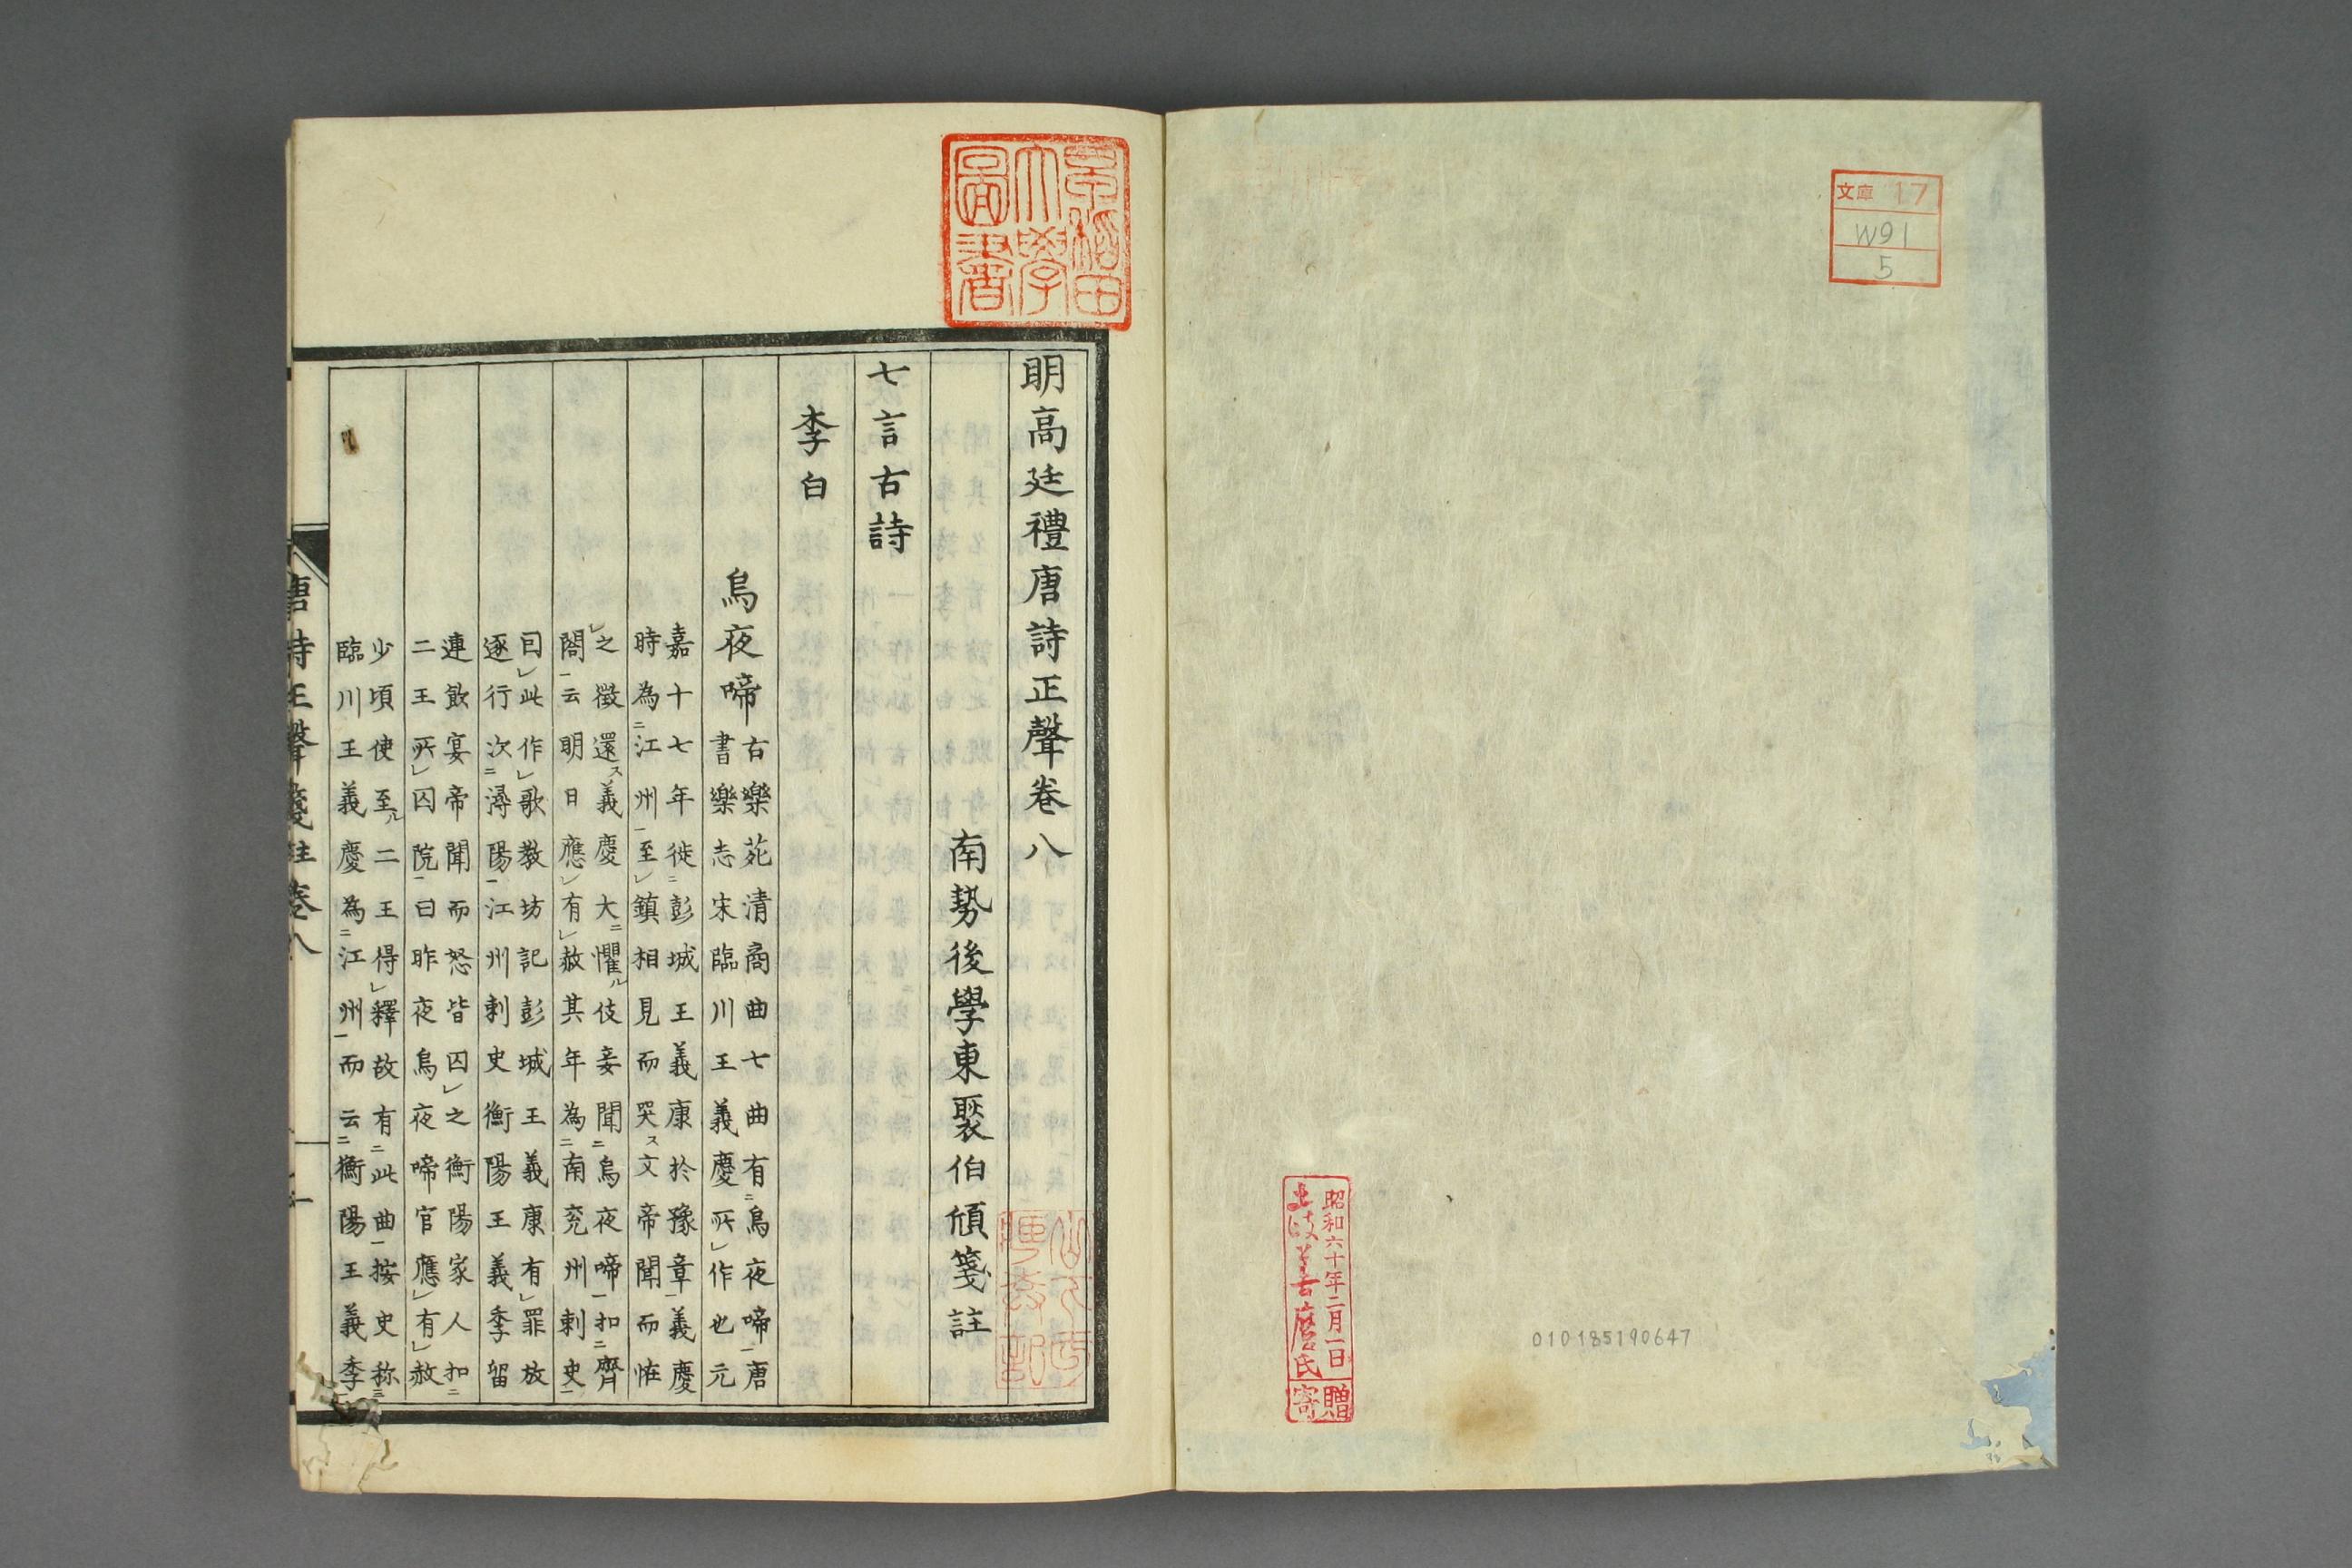 文庫 17
W91
5
昭和六十年二月一日
土岐善麿氏
寄贈
010185190647
早稲田大學圖書
明高廷禮唐詩正聲卷八
南勢後學東褧伯頎箋註
七言古詩
李白
烏夜啼
古樂苑清商曲七曲有二烏夜啼一唐
書樂志宋臨川王義慶所レ作也元
嘉十七年徙二彭城王義康於豫章一義慶
時為二江州一至レ鎮相見而哭ス文帝聞而恠
レ之徵還ス義慶大ニ懼ル伎妾聞二烏夜啼一扣二齊
閤一云明日應レ有レ赦其年為二南兖州刺史一
因レ此作レ歌教坊記彭城王義康有レ罪放
逐行次二潯陽一江州刺史衡陽王義季留
連飲宴帝聞而怒皆囚レ之衡陽家人扣二
二王所レ囚院一曰昨夜烏夜啼官應レ有レ赦
少頃使至ル二王得レ釋故有二此曲一按史称三
臨川王義慶為二江州一而云二衡陽王義季一
唐詩正聲箋註 卷八
一